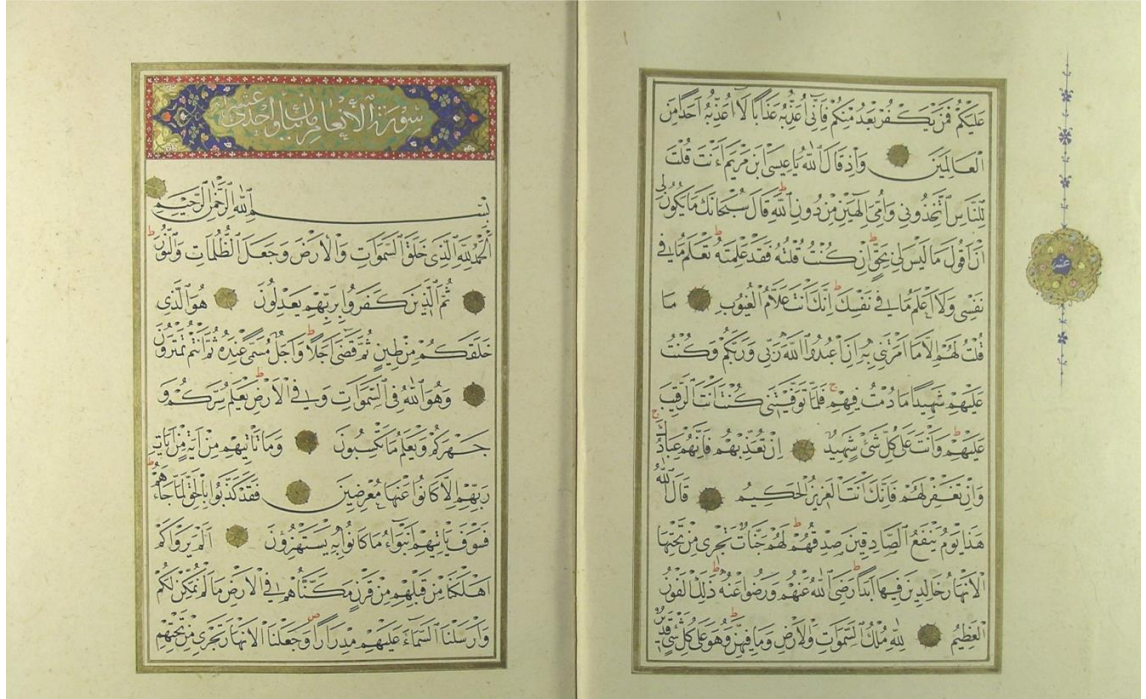 عَلَيْكُمْ فَمَنْ يَكْفُرْ بَعْدُ مِنْكُمْ فَاِنّٖى اُعَذِّبُهُ عَذَابًا لَٓا اُعَذِّبُهُ اَحَدًا مِنَ
الْعَالَمِينَ وَاِذْ قَالَ اللّٰهُ يَا عِيسَى ابْنَ مَرْيَمَ ءَاَنْتَ قُلْتَ
لِلنَّاسِ اتَّخِذُونِى وَاُمِّىَ اِلٰهَيْنِ مِنْ دُونِ اللّٰهِ ط قَالَ سُبْحَانَكَ مَا يَكُونُ لِى
اَنْ اَقُولَ مَا لَيْسَ لِى بِحَقٍّ ط اِنْ كُنْتُ قُلْتُهُ فَقَدْ عَلِمْتَهُ ط تَعْلَمُ مَا فِى
نَفْسِى وَلَٓا اَعْلَمُ مَا فِى نَفْسِكَ ط اِنَّكَ اَنْتَ عَلَّامُ الْغُيُوبِ مَا
قُلْتُ لَهُمْ اِلَّا مَٓا اَمَرْتَنِى بِهٖٓ اَنِ اعْبُدُوا اللّٰهَ رَبِّى وَرَبَّكُمْ وَكُنْتُ
عَلَيْهِمْ شَهِيدًا مَا دُمْتُ فِيهِمْ ج فَلَمَّا تَوَفَّيْتَنِى كُنْتَ اَنْتَ الرَّقِيبَ
عَلَيْهِمْ ط وَاَنْتَ عَلٰى كُلِّ شَىْءٍ شَهِيدٌ اِنْ تُعَذِّبْهُمْ فَاِنَّهُمْ عِبَادُكَ ج
وَاِنْ تَغْفِرْ لَهُمْ فَاِنَّكَ اَنْتَ الْعَزِيزُ الْحَكِيمُ قَالَ اللّٰهُ
هٰذَا يَوْمُ يَنْفَعُ الصَّادِقِينَ صِدْقُهُمْ ط لَهُمْ جَنَّاتٌ تَجْرِى مِنْ تَحْتِهَا
الْاَنْهَارُ خَالِدِينَ فِيهَٓا اَبَدًا ط رَضِىَ اللّٰهُ عَنْهُمْ وَرَضُوا عَنْهُ ط ذٰلِكَ الْفَوْزُ
الْعَظِيمُ لِلّٰهِ مُلْكُ السَّمٰوَاتِ وَالْاَرْضِ وَمَا فِيهِنَّ ط وَهُوَ عَلٰى كُلِّ شَىْءٍ قَدِيرٌ
عشر
سورة الأنعام مائة واحدى
بِسْمِ اللّٰهِ الرَّحْمٰنِ الرَّحِيمِ
اَلْحَمْدُ لِلّٰهِ الَّذِى خَلَقَ السَّمٰوَاتِ وَالْاَرْضَ وَجَعَلَ الظُّلُمَاتِ وَالنُّورَ ط
ثُمَّ الَّذِينَ كَفَرُوا بِرَبِّهِمْ يَعْدِلُونَ هُوَ الَّذِى
خَلَقَكُمْ مِنْ طِينٍ ثُمَّ قَضٰٓى اَجَلًا ط وَاَجَلٌ مُسَمًّى عِنْدَهُ ثُمَّ اَنْتُمْ تَمْتَرُونَ
وَهُوَ اللّٰهُ فِى السَّمٰوَاتِ وَفِى الْاَرْضِ ط يَعْلَمُ سِرَّكُمْ وَ
جَهْرَكُمْ وَيَعْلَمُ مَا تَكْسِبُونَ وَمَا تَاْتِيهِمْ مِنْ اٰيَةٍ مِنْ اٰيَاتِ
رَبِّهِمْ اِلَّا كَانُوا عَنْهَا مُعْرِضِينَ فَقَدْ كَذَّبُوا بِالْحَقِّ لَمَّا جَٓاءَهُمْ ط
فَسَوْفَ يَاْتِيهِمْ اَنْبٰٓؤُا مَا كَانُوا بِهٖ يَسْتَهْزِؤُنَ اَلَمْ يَرَوْا كَمْ
اَهْلَكْنَا مِنْ قَبْلِهِمْ مِنْ قَرْنٍ مَكَّنَّاهُمْ فِى الْاَرْضِ مَا لَمْ نُمَكِّنْ لَكُمْ
وَاَرْسَلْنَا السَّمَٓاءَ عَلَيْهِمْ مِدْرَارًا ص وَجَعَلْنَا الْاَنْهَارَ تَجْرِى مِنْ تَحْتِهِمْ